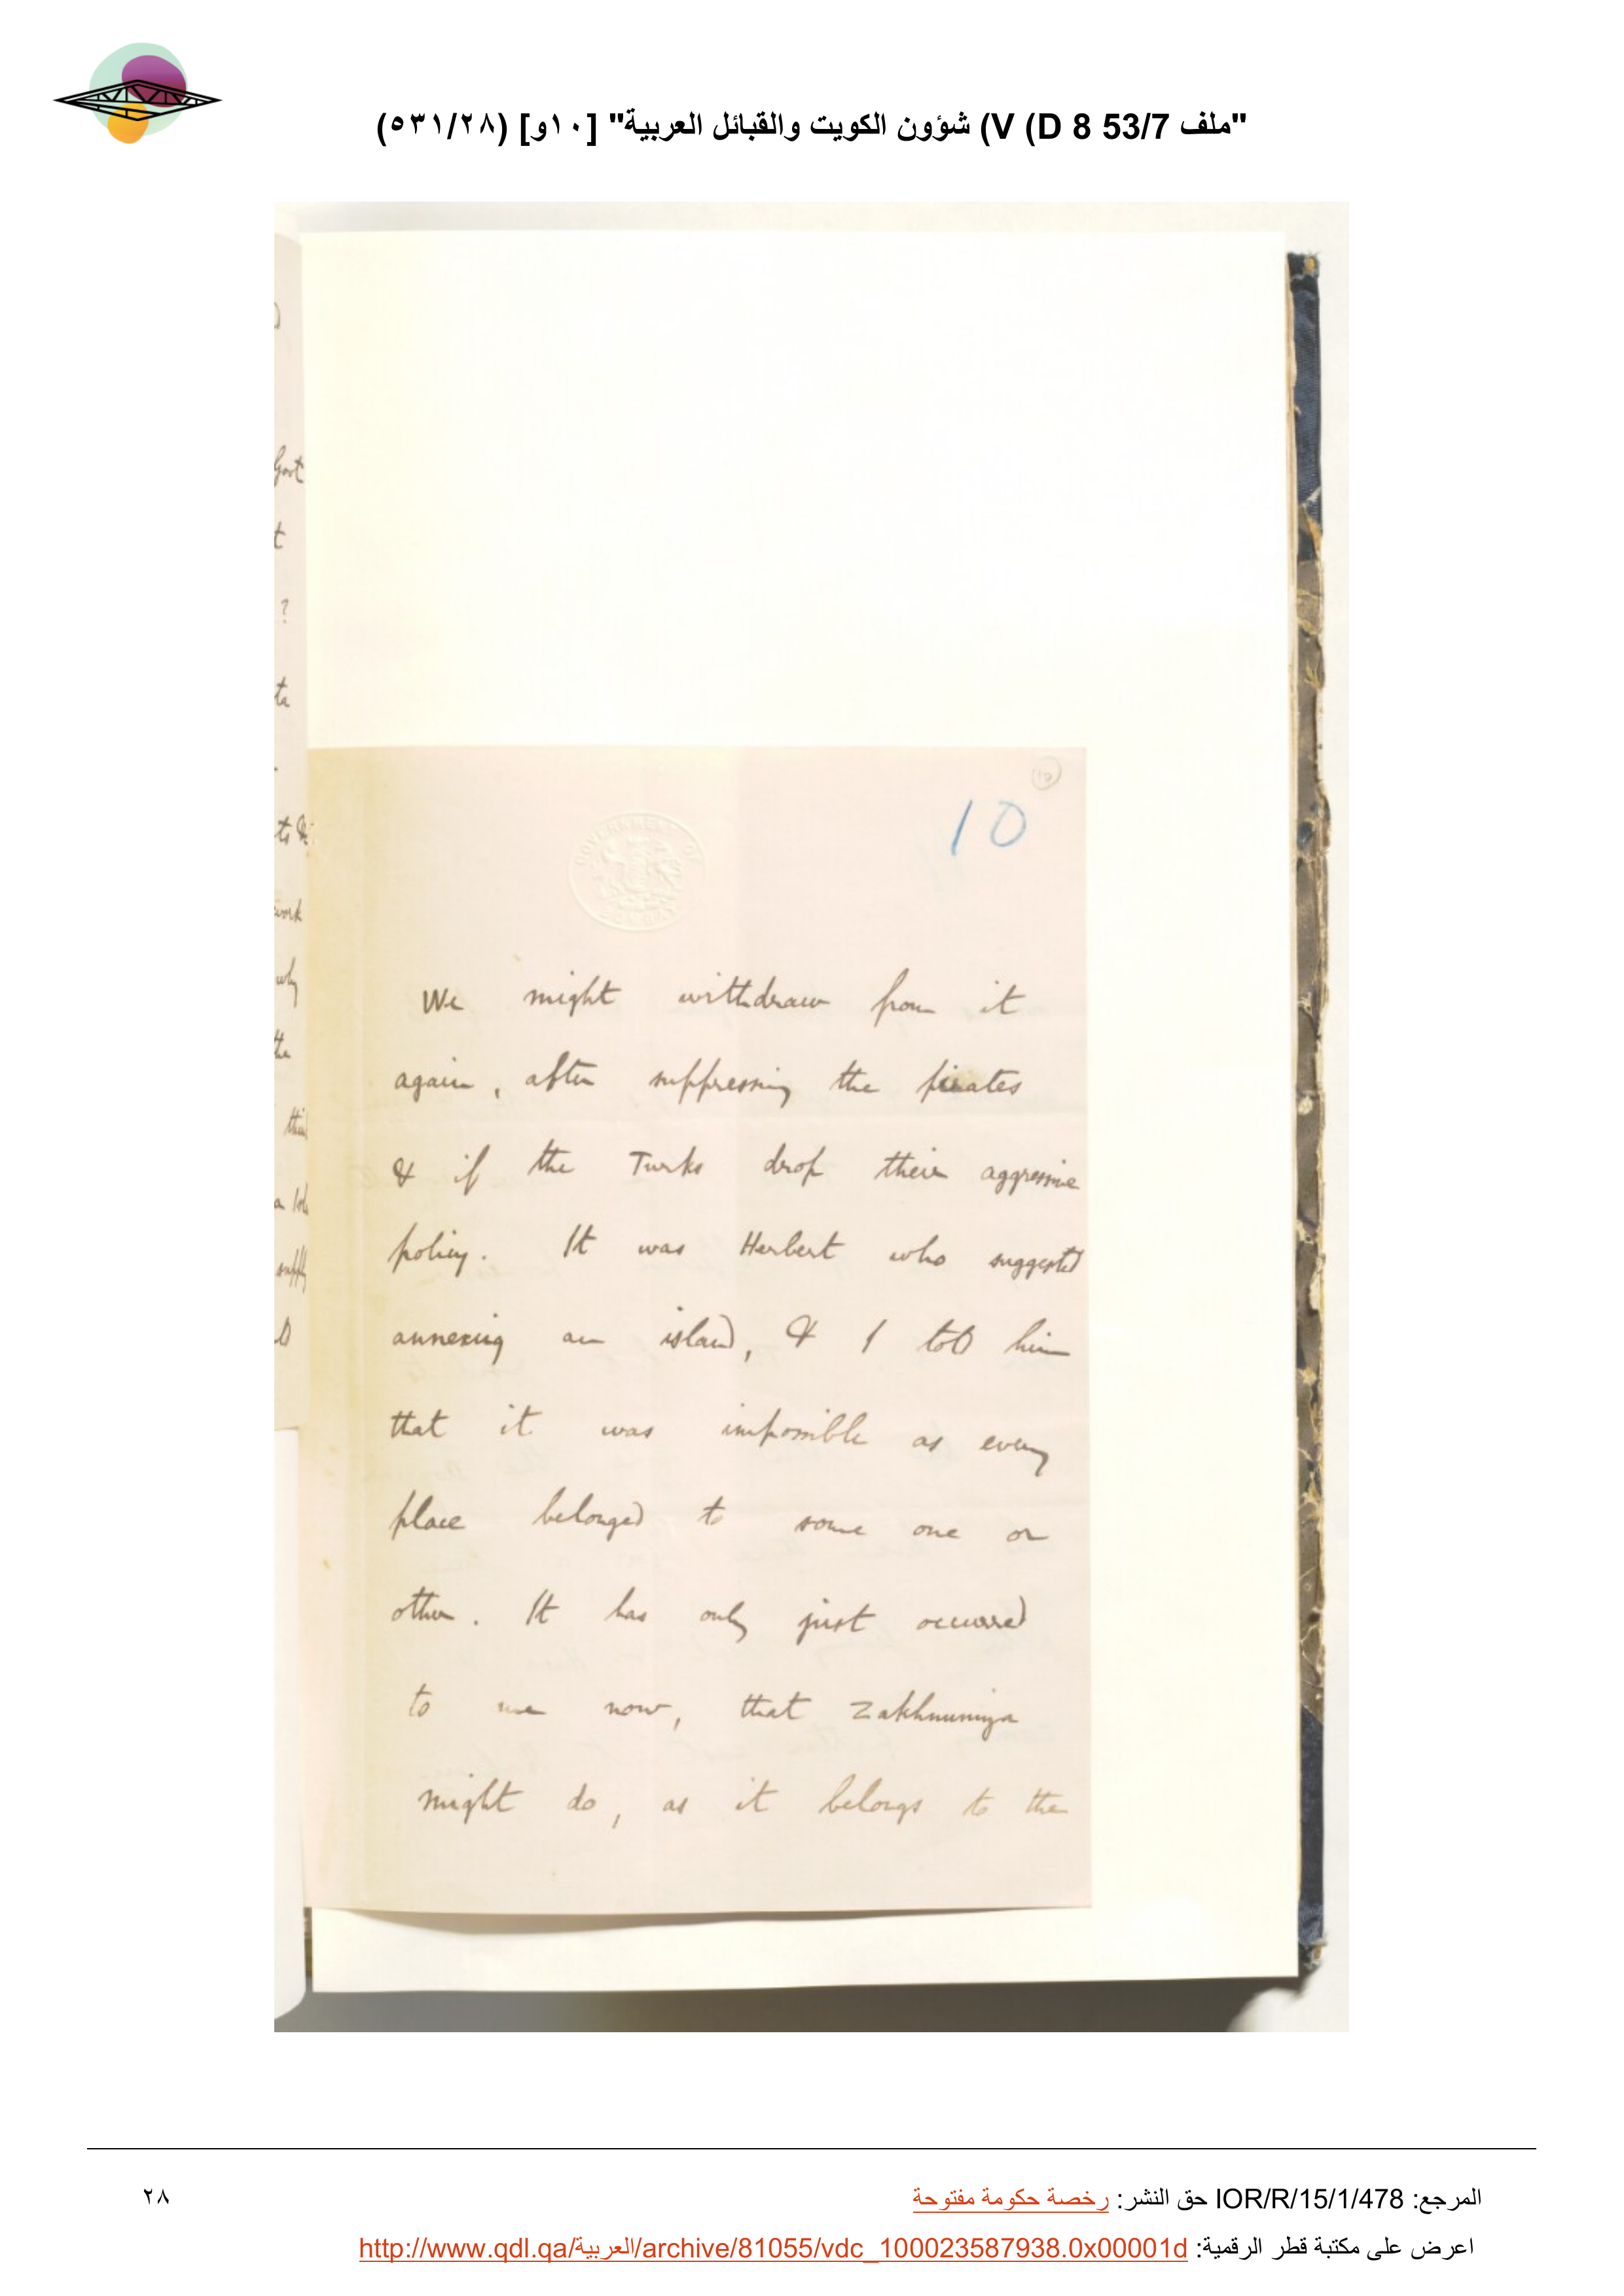 "ملف 53/7 D 8) V) شؤون الكويت والقبائل العربية" [١٠و] (٥٣١/٢٨)
10
10
We might withdraw from it
again, after suppressing the pirates
& if the Turks drop their aggressive
policy. It was Herbert who suggested
annexing an island, & I told him
that it was impossible as every
place belonged to some one or
other. It has only just occurred
to me now, that Zakhnuniya
might do, as it belongs to the
Govt
t
?
ts &
work
why
the
supply
المرجع: IOR/R/15/1/478 حق النشر: رخصة حكومة مفتوحة
اعرض على مكتبة قطر الرقمية: http://www.qdl.qa/العربية/archive/81055/vdc_100023587938.0x00001d
٢٨